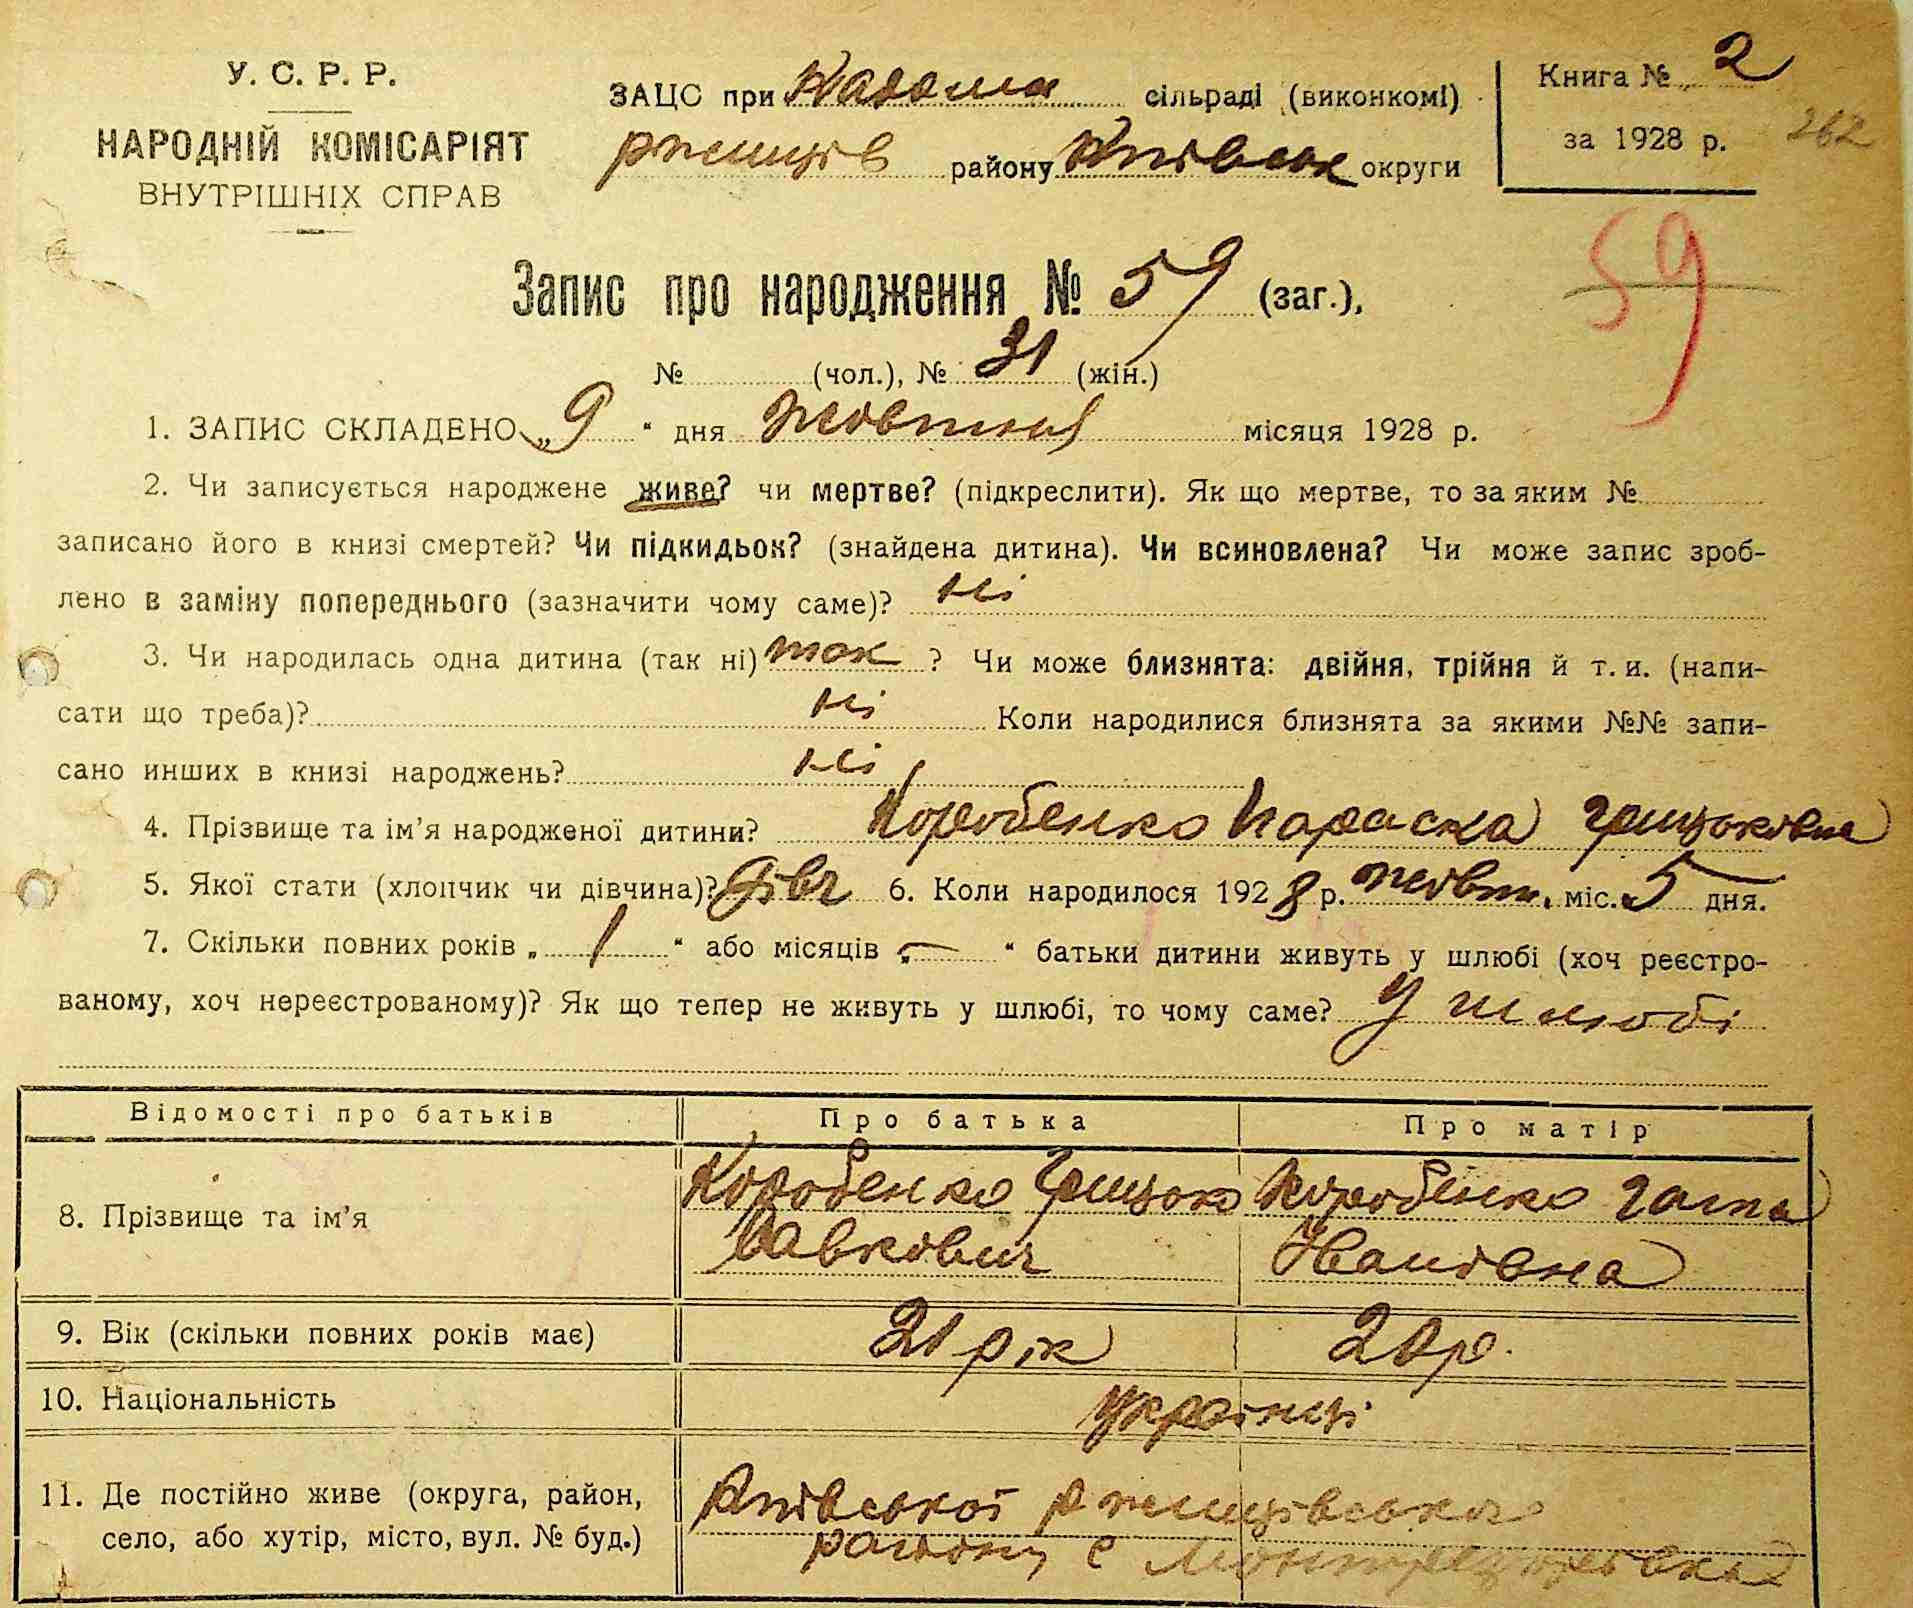 У. С. Р. Р.
НАРОДНІЙ КОМІСАРІЯТ
ВНУТРІШНІХ СПРАВ
ЗАЦС при Кадом сільраді (виконкомі)
Ржищів району Київськ округи
Книга № 2
за 1928 р.
262
59
Запис про народження № 59 (заг.),
№ (чол.), № 31 (жін.)
1. ЗАПИС СКЛАДЕНО „9“ дня Жовтня місяця 1928 р.
2. Чи записується народжене живе? чи мертве? (підкреслити). Як що мертве, то за яким №
записано його в книзі смертей? Чи підкидьок? (знайдена дитина). Чи всиновлена? Чи може запис зроб-
лено в заміну попереднього (зазначити чому саме)? ні
3. Чи народилась одна дитина (так ні) так ? Чи може близнята: двійня, трійня й т. и. (напи-
сати що треба)? ні Коли народилися близнята за якими №№ запи-
сано инших в книзі народжень? ні
4. Прізвище та ім’я народженої дитини? Коробенко Параска Грицьковна
5. Якої стати (хлопчик чи дівчина)? Дівч 6. Коли народилося 1928 р. жовт. міс. 5 дня.
7. Скільки повних років „ 1 “ або місяців „ — “ батьки дитини живуть у шлюбі (хоч реєстро-
ваному, хоч нереєстрованому)? Як що тепер не живуть у шлюбі, то чому саме? У шлюбі
Відомості про батьків Про батька Про матір
8. Прізвище та ім’я Коробенко Грицько Коробенко Гапка
Савкович Иванівна
9. Вік (скільки повних років має) 21 рік 20 р.
10. Національність українці
11. Де постійно живе (округа, район, Київської Ржищівського
село, або хутір, місто, вул. № буд.) району с